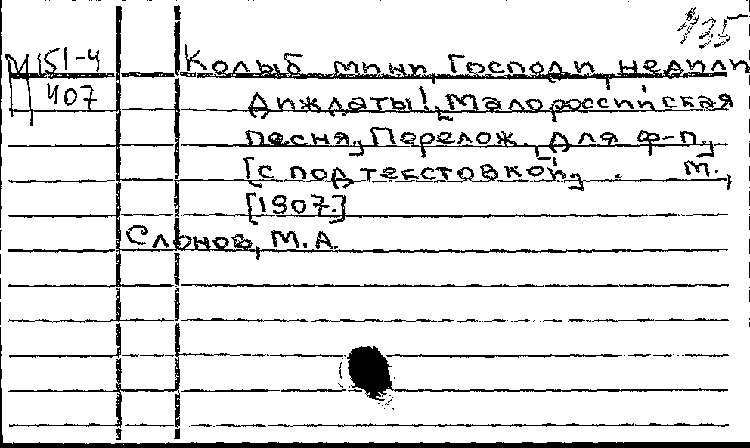 435
М 151-4 Колыб мини, Господи, недили
407 Диждаты!, Малороссийская
песня, Перелож. для ф-п.,
[с подтекстовкой], . М.,
[1907.]
Слонов, М.А.